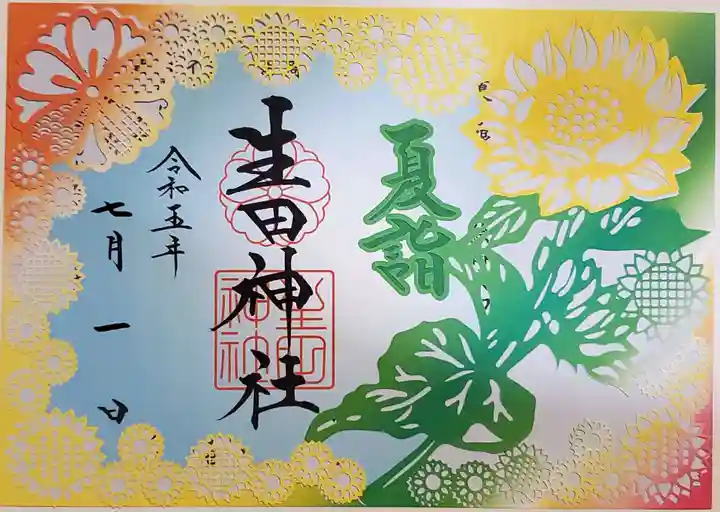 夏詣
生田神社
令和五年
七月一日